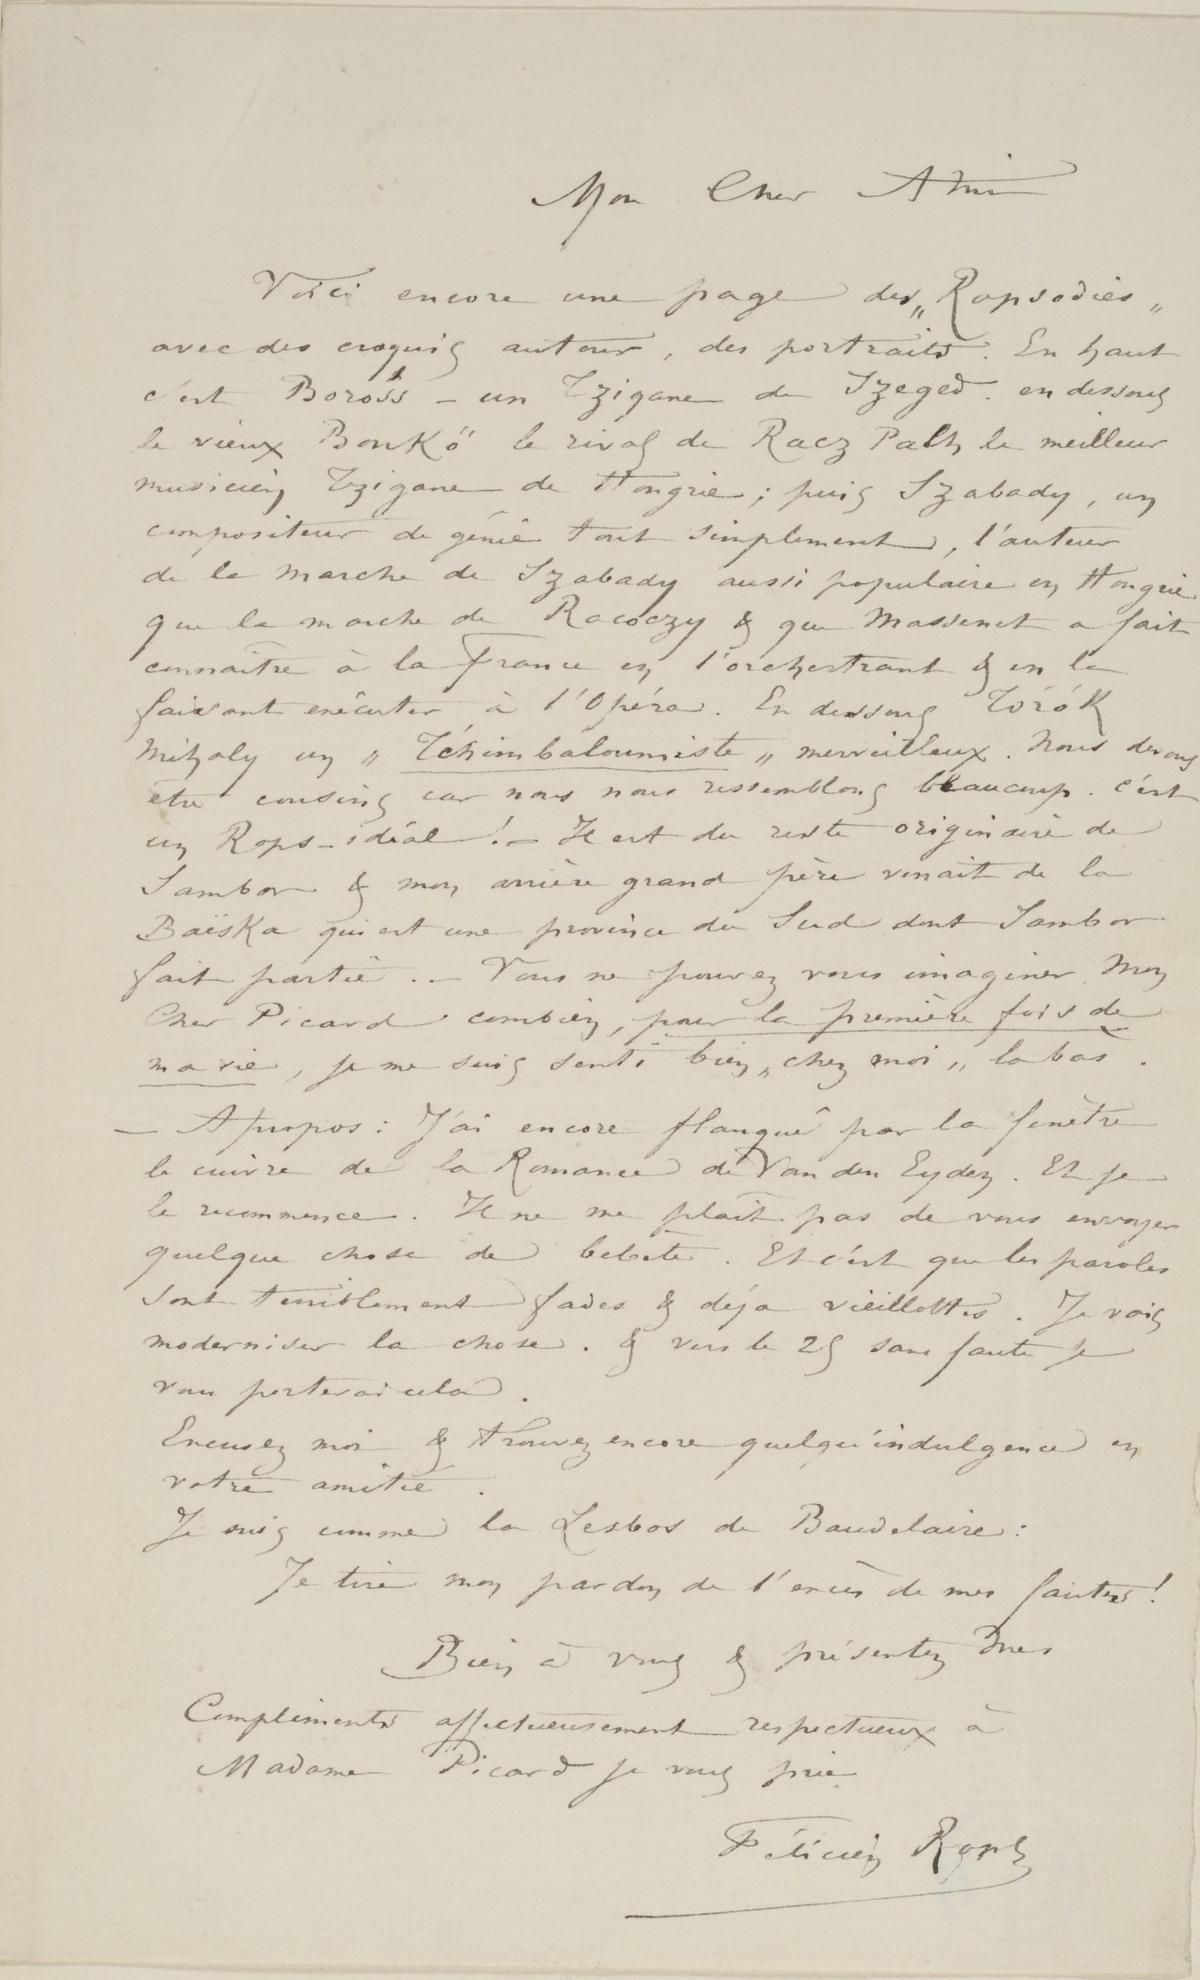 Mon Cher Ami
Voici encore une page des „Rapsodies„
avec des croquis autour, des portraits. En haut
c'est Boross – un Tzigane de Szeged. en dessous
le vieux Bonkö le rival de Racz Palh le meilleur
musicien Tzigane de Hongrie ; puis Szabady, un
compositeur de génie tout simplement, l'auteur
de la marche de Szabady aussi populaire en Hongrie
que la marche de Racoczy & que Massenet a fait
connaître à la France en l'orchestrant & en la
faisant exécuter à l'Opéra. En dessous Török
Mihaly un „ Tchimbaloumiste „ merveilleux. Nous devons
être cousins car nous nous ressemblons beaucoup. c'est
un Rops-idéal ! – Il est du reste originaire de
Sambor & mon arrière grand père venait de la
Baëska qui est une province du Sud dont Sambor
fait partie. – Vous ne pouvez vous imaginer Mon
Cher Picard combien, pour la première fois de
ma vie, je me suis senti bien „chez moi„ là bas.
– Apropos : J'ai encore flanqué par la fenêtre
le cuivre de la Romance de Van den Eyden. Et je
le recommence. Il ne me plaît pas de vous envoyer
quelque chose de bebete. Et c'est que les paroles
sont terriblement fades & déja vieillottes. Je vais
moderniser la chose. & vers le 25 sans faute je
vous porterai cela.
Excusez moi & trouvez encore quelqu'indulgence en
votre amitié.
Je suis comme la Lesbos de Baudelaire :
Je tire mon pardon de l'excès de mes fautes !
Bien à vous & présentez mes
Compliments affectueusement respectueux à
Madame Picard je vous prie
Félicien Rops